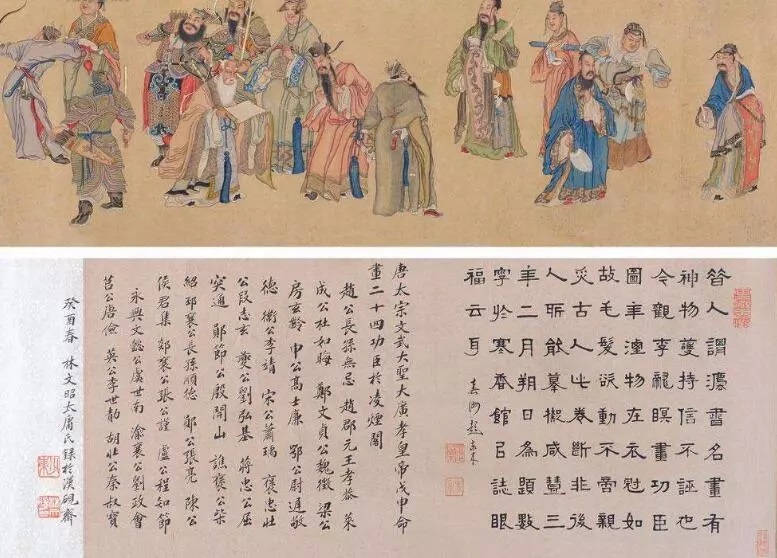 昔人謂灋書名畫有
神物蒦持信不誣也
今觀李龍瞑畫功臣
圖年湮物在衣冠如
故毛髮欲動不啻親
炙古人此卷斷非後
人所能摹擬咸豐三
年二月朔日為題數
字於寒香館以誌眼
福云耳
唐太宗文武大聖大廣孝皇帝戊申命
畫二十四功臣於凌煙閣
趙公長孫無忌 趙郡元王孝恭 萊
成公杜如晦 鄭文貞公魏徵 梁公
房玄齡 申公高士廉 鄂公尉遲敬
德 衛公李靖 宋公蕭瑀 褒忠壯
公段志玄 夔公劉弘基 蔣忠公屈
突通 鄖節公殷開山 譙襄公柴
紹 邳襄公長孫順德 鄖公張亮 陳公
侯君集 郯襄公張公謹 盧公程知節
永興文懿公虞世南 渝襄公劉政會
莒公唐儉 英公李世勣 胡壯公秦叔寶
癸酉春 林文昭太庸氏錄於漢硯齋